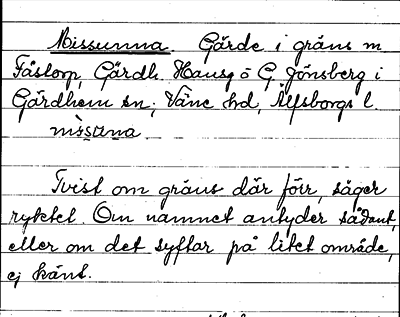 Missunna. Gärde i gräns m
Fåstorp, Gärdh. Hansg o G Jönsberg i
Gärdhem sn; Väne hd, Älfsborgs l.
missuna.
Tvist om gräns där förr, säger
ryktet. Om namnet antyder sådant,
eller om det syftar på litet område,
ej känt.